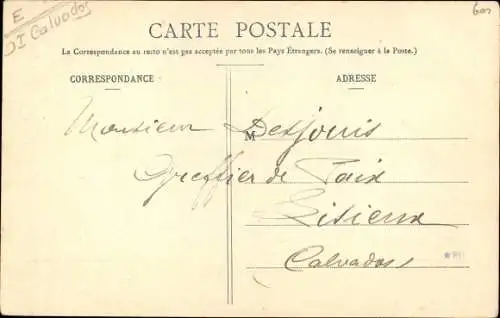 E
DI Calvados
600
CARTE POSTALE
La Correspondance au recto n'est pas acceptée par tous les Pays Étrangers. (Se renseigner à la Poste.)
CORRESPONDANCE
ADRESSE
Monsieur M Desjouis
Greffier de Paix
Lisieux
Calvados